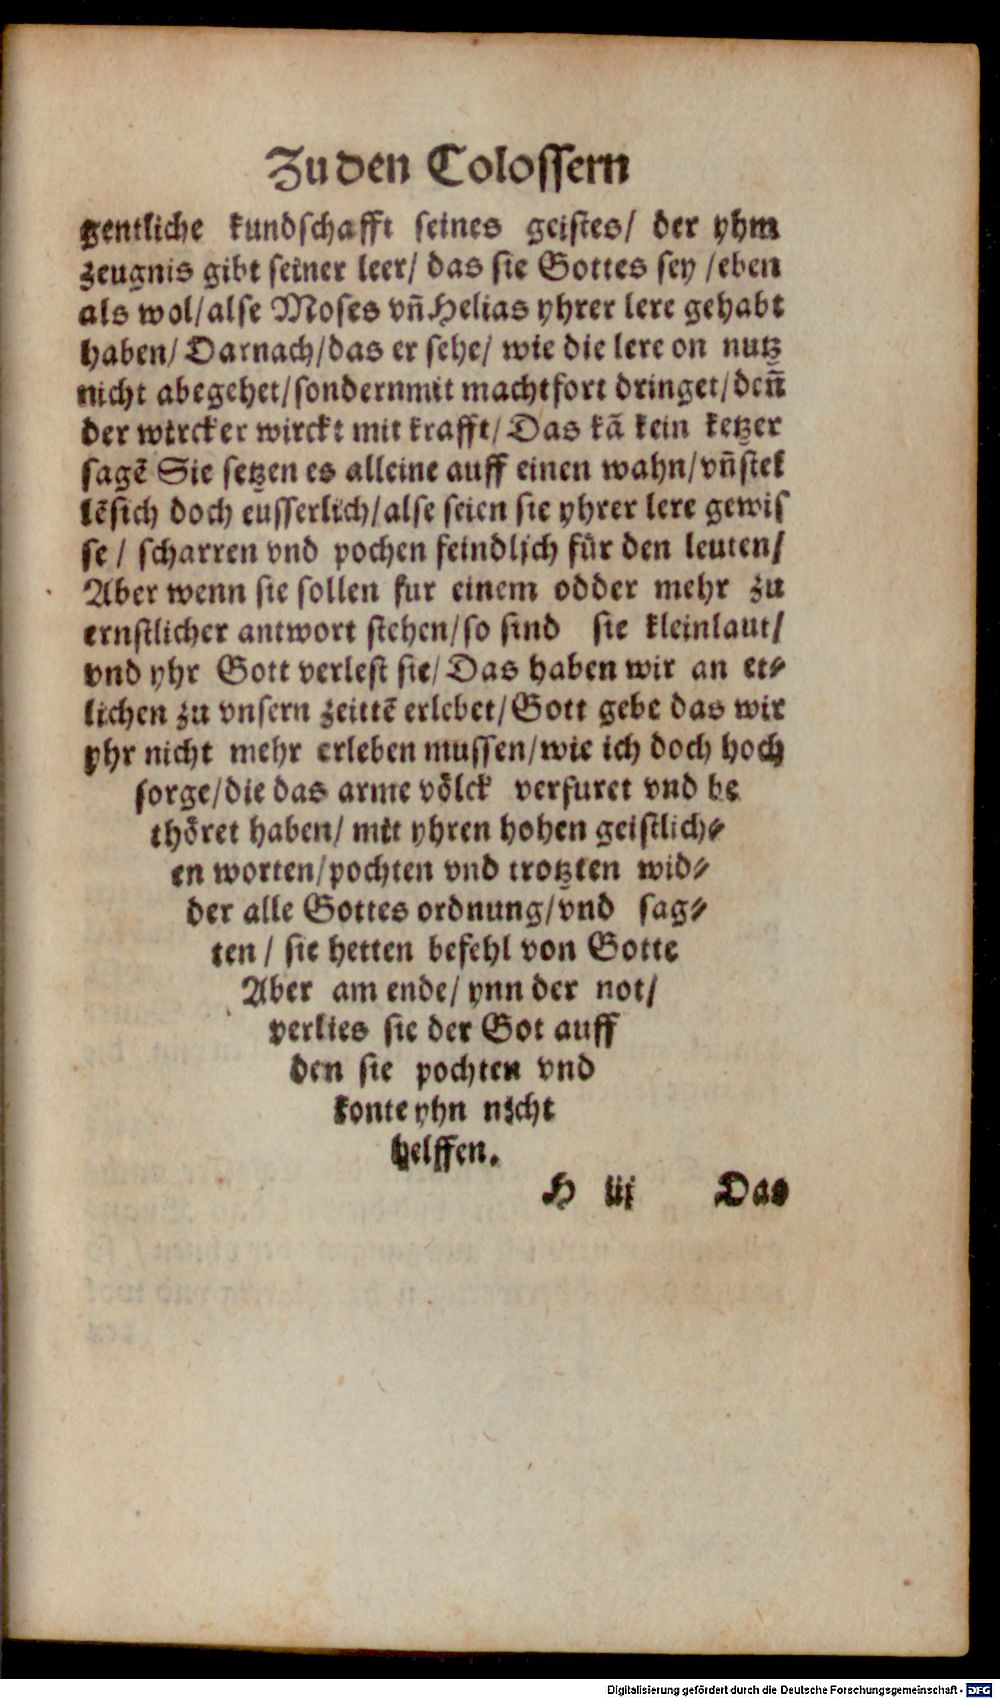 Zu den Colossern
gentliche kundschafft seines geistes/ der yhm
zeugnis gibt seiner leer/ das sie Gottes sey /eben
als wol/alse Moses vn̄ Helias yhrer lere gehabt
haben/ Darnach/das er sehe/ wie die lere on nutz
nicht abegehet/sondernmit macht fort dringet/den̄
der wircker wirckt mit krafft/ Das kā kein ketzer
sagē Sie setzen es alleine auff einen wahn/vn̄ stel
lēsich doch eusserlich/alse seien sie yhrer lere gewis
se / scharren vnd pochen feindlich fur den leuten/
Aber wenn sie sollen fur einem odder mehr zu
ernstlicher antwort stehen/so sind sie kleinlaut/
vnd yhr Gott verlest sie/ Das haben wir an et⸗
lichen zu vnsern zeittē erlebet/Gott gebe das wir
yhr nicht mehr erleben mussen/wie ich doch hoch
sorge/die das arme völck verfuret vnd be
thöret haben/ mit yhren hohen geistlich⸗
en worten/pochten vnd trotzten wid⸗
der alle Gottes ordnung/vnd sag⸗
ten / sie hetten befehl von Gotte
Aber am ende/ ynn der not/
verlies sie der Got auff
den sie pochten vnd
konte yhn nicht
helffen.
H iij Das
Digitalisierung gefördert durch die Deutsche Forschungsgemeinschaft - DFG